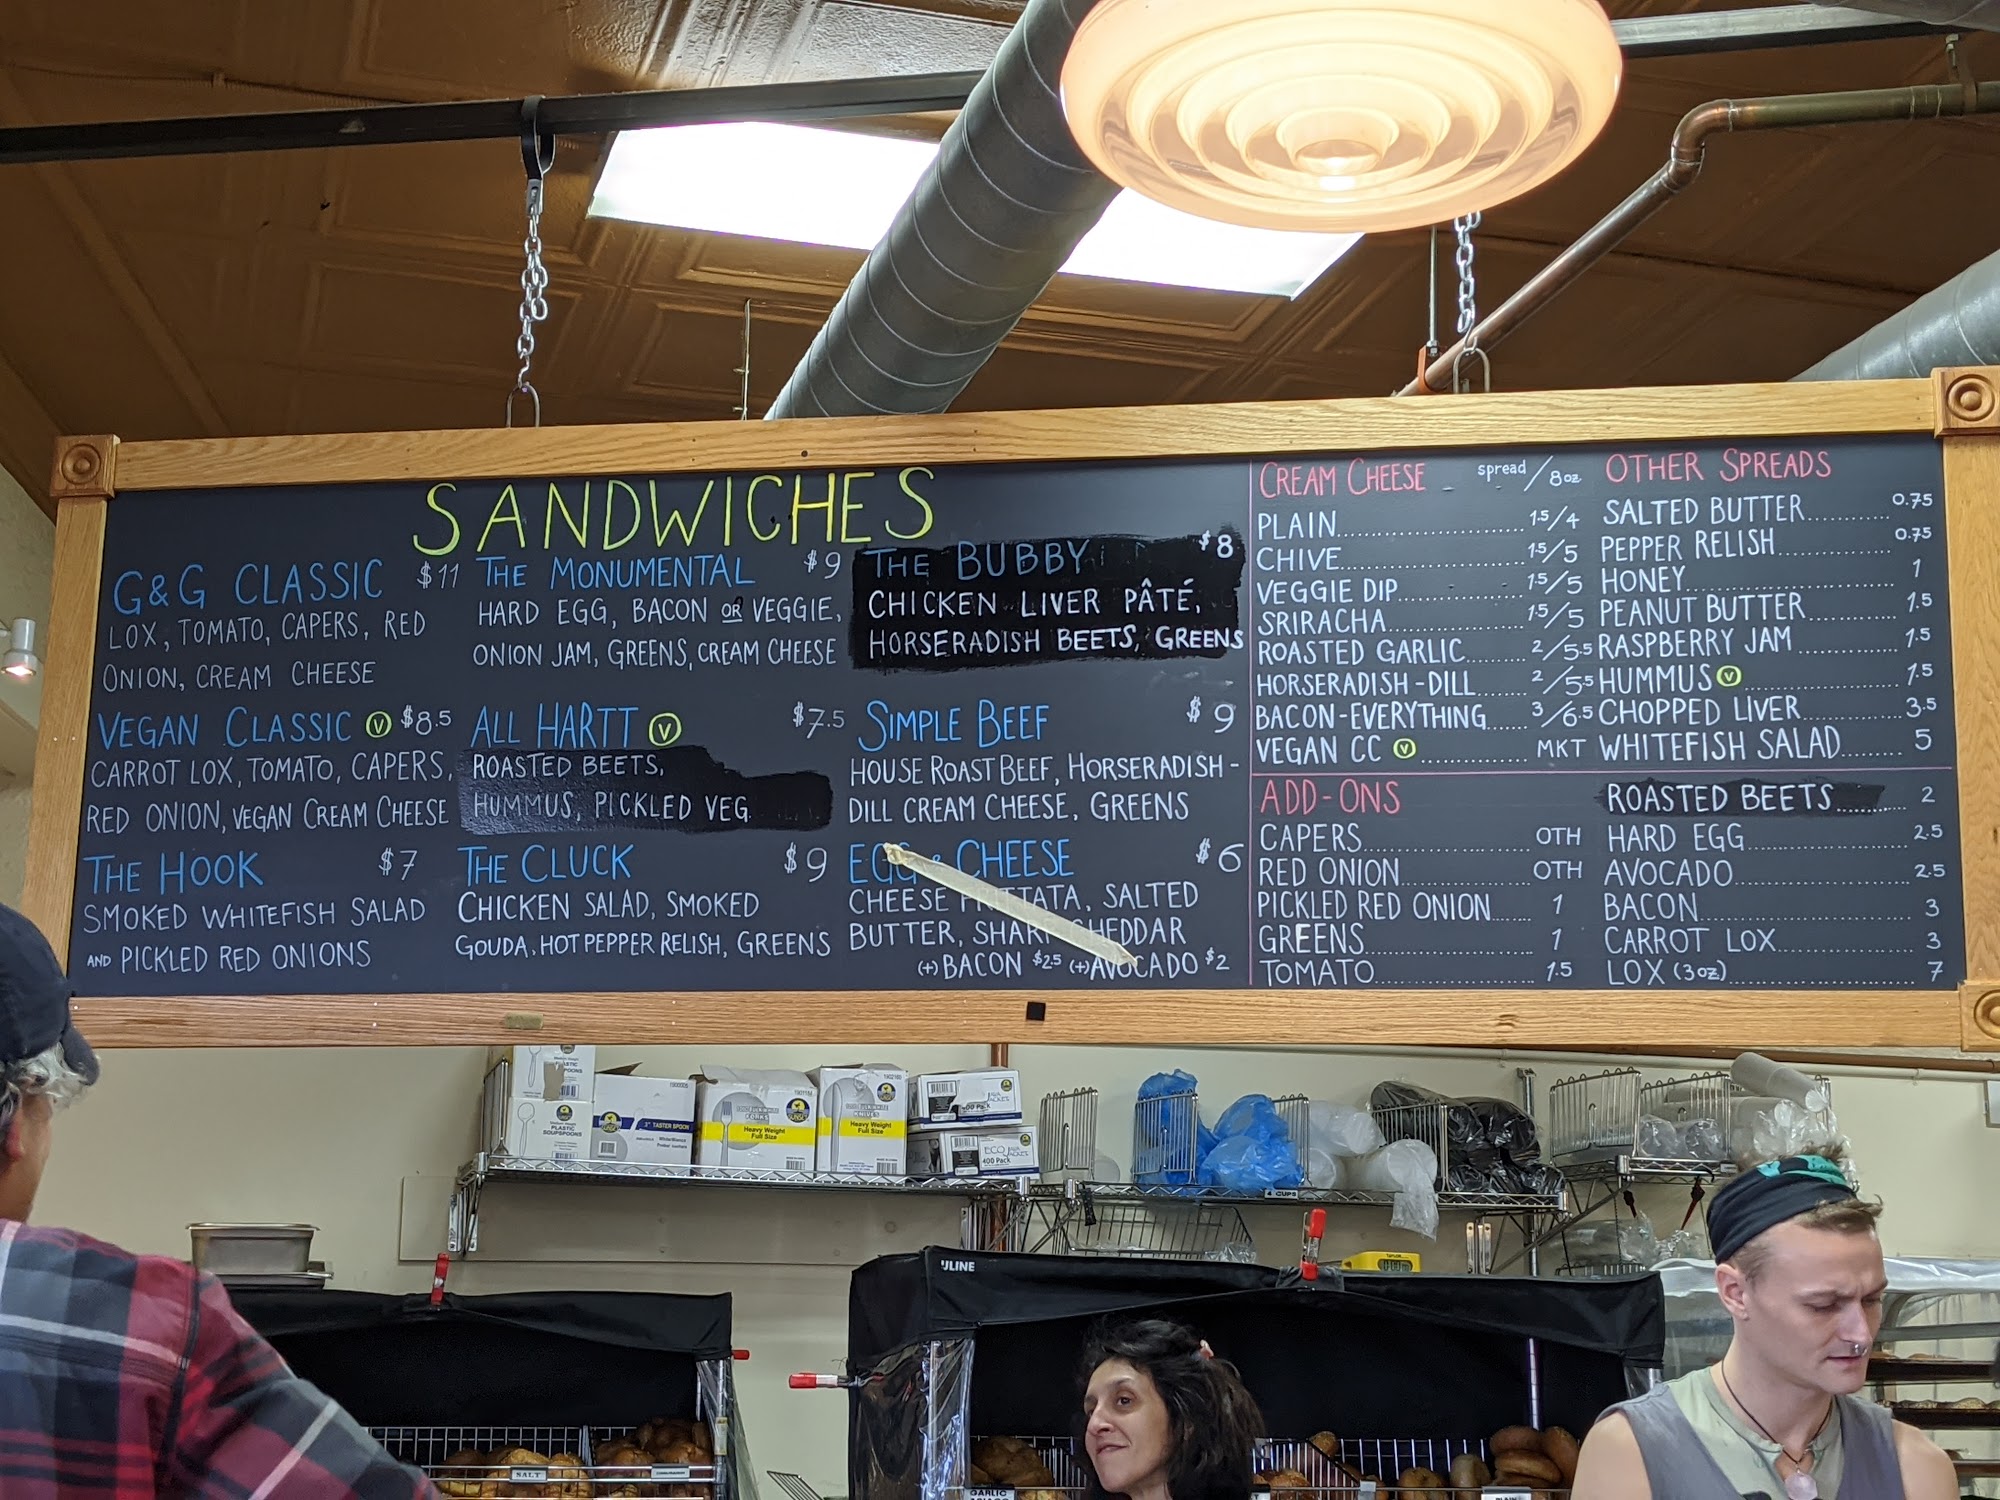 SANDWICHES
G&G CLASSIC $11
LOX, TOMATO, CAPERS, RED
ONION, CREAM CHEESE
THE MONUMENTAL $9
HARD EGG, BACON OR VEGGIE,
ONION JAM, GREENS, CREAM CHEESE
THE BUBBY $8
CHICKEN LIVER PÂTÉ,
HORSERADISH BEETS, GREENS
VEGAN CLASSIC V $8.5
CARROT LOX, TOMATO, CAPERS,
RED ONION, VEGAN CREAM CHEESE
ALL HARTT V $7.5
ROASTED BEETS,
HUMMUS, PICKLED VEG
SIMPLE BEEF $9
HOUSE ROAST BEEF, HORSERADISH-
DILL CREAM CHEESE, GREENS
THE HOOK $7
SMOKED WHITEFISH SALAD
AND PICKLED RED ONIONS
THE CLUCK $9
CHICKEN SALAD, SMOKED
GOUDA, HOT PEPPER RELISH, GREENS
EGG & CHEESE $6
CHEESE FRITTATA, SALTED
BUTTER, SHARP CHEDDAR
(+) BACON $2.5 (+) AVOCADO $2
CREAM CHEESE spread/8oz
PLAIN 1.5/4
CHIVE 1.5/5
VEGGIE DIP 1.5/5
SRIRACHA 1.5/5
ROASTED GARLIC 2/5.5
HORSERADISH-DILL 2/5.5
BACON-EVERYTHING 3/6.5
VEGAN CC V MKT
OTHER SPREADS
SALTED BUTTER 0.75
PEPPER RELISH 0.75
HONEY 1
PEANUT BUTTER 1.5
RASPBERRY JAM 1.5
HUMMUS V 1.5
CHOPPED LIVER 3.5
WHITEFISH SALAD 5
ADD-ONS
CAPERS OTH
RED ONION OTH
PICKLED RED ONION 1
GREENS 1
TOMATO 1.5
ROASTED BEETS 2
HARD EGG 2.5
AVOCADO 2.5
BACON 3
CARROT LOX 3
LOX (3oz) 7
PLASTIC
SOUPSPOONS
3" TASTER SPOON
FORKS
Heavy Weight
Full Size
KNIVES
Heavy Weight
Full Size
400 Pack
ECO
400 Pack
4 CUPS
ULINE
SALT
GARLIC
PLAIN